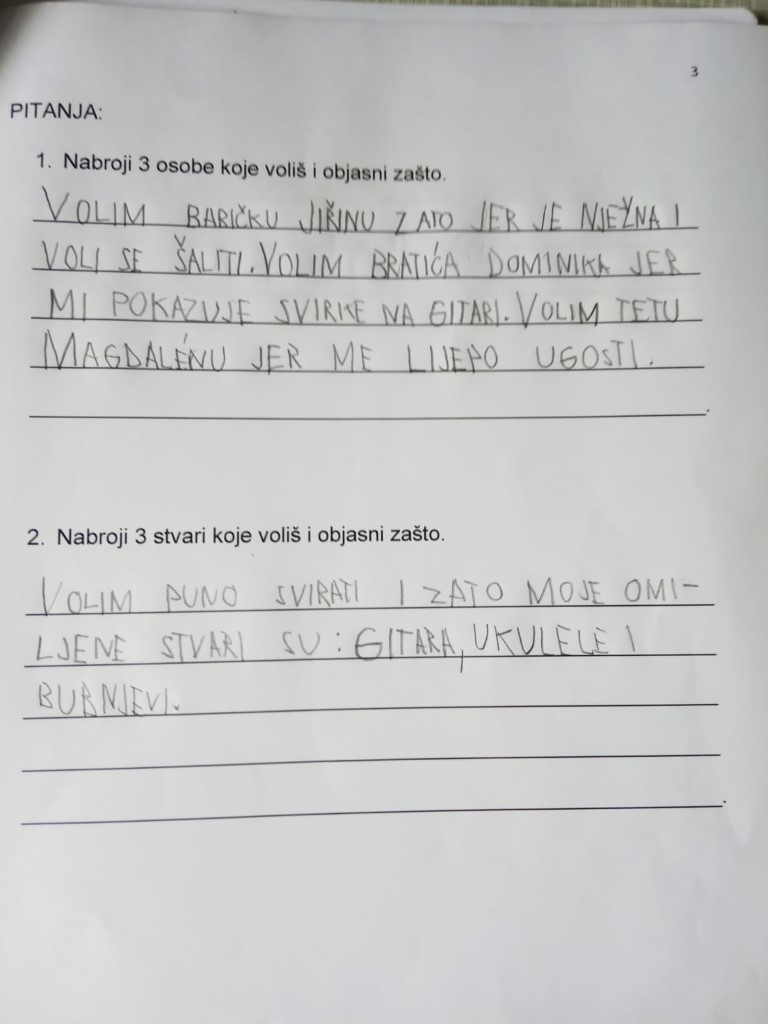 3
PITANJA:
1. Nabroji 3 osobe koje voliš i objasni zašto.
VOLIM BARIČKU JIŘINU ZATO JER JE NJEŽNA I
VOLI SE ŠALITI. VOLIM BRATIĆA DOMINIKA JER
MI POKAZUJE SVIRKE NA GITARI. VOLIM TETU
MAGDALÉNU JER ME LIJEPO UGOSTI.
2. Nabroji 3 stvari koje voliš i objasni zašto.
VOLIM PUNO SVIRATI I ZATO MOJE OMI-
LJENE STVARI SU: GITARA, UKULELE I
BUBNJEVI.